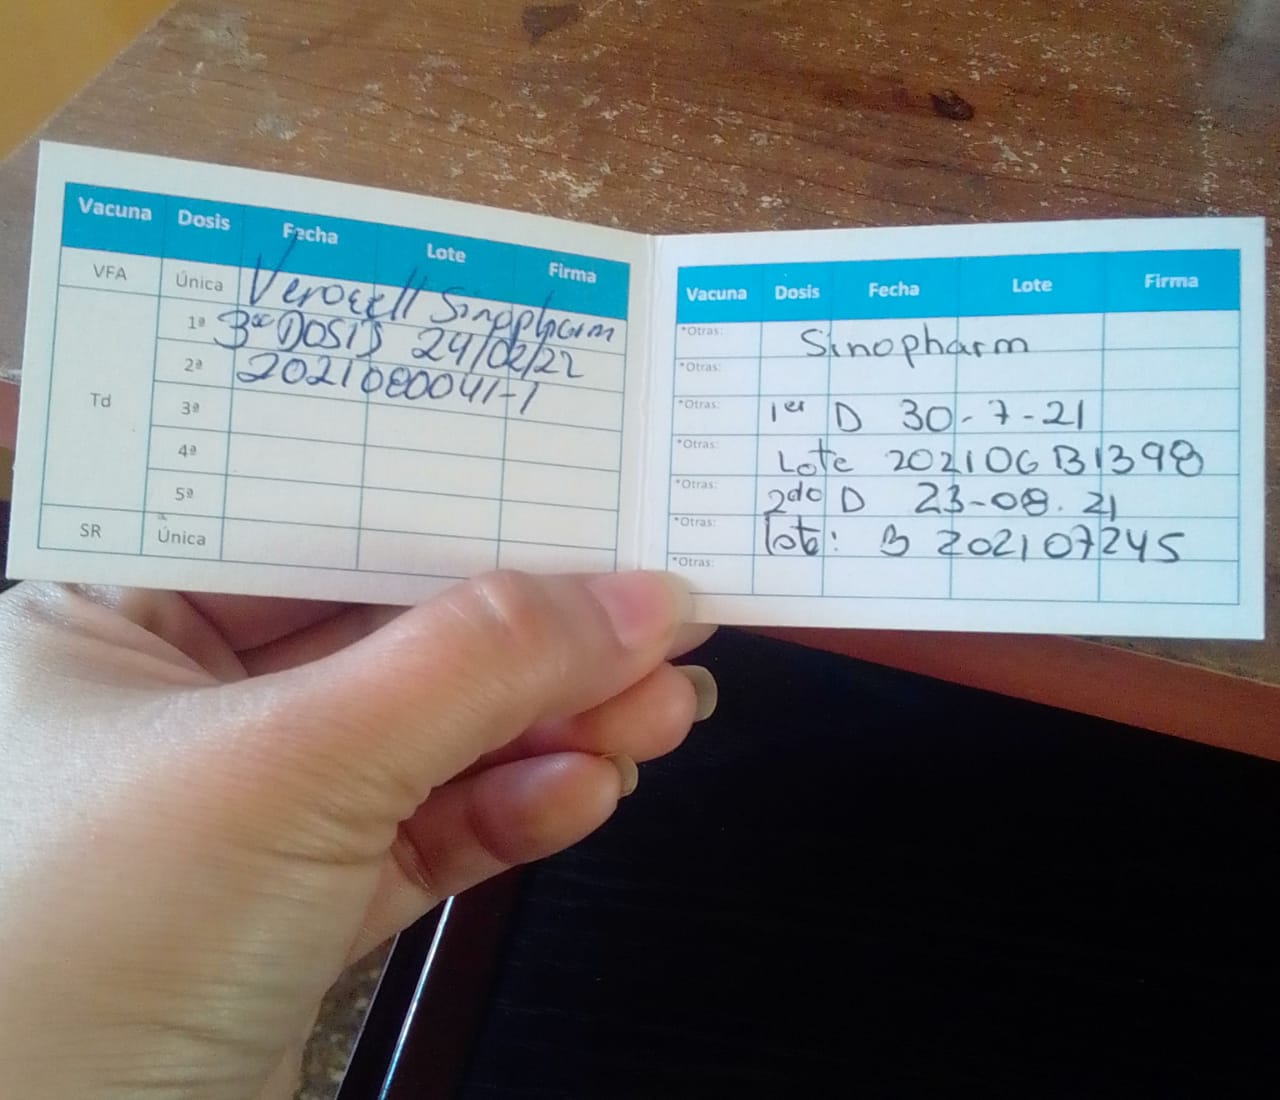 Vacuna Dosis Fecha Lote Firma
VFA Única Verocell Sinopharm
1ª 3ra DOSIS 24/02/22
2ª 2021080041-1
Td 3ª
4ª
5ª
SR Única
Vacuna Dosis Fecha Lote Firma
*Otras: Sinopharm
*Otras:
*Otras: 1er D 30-7-21
*Otras: Lote 202106B1398
*Otras: 2do D 23-08.21
*Otras: lote: B 202107245
*Otras: